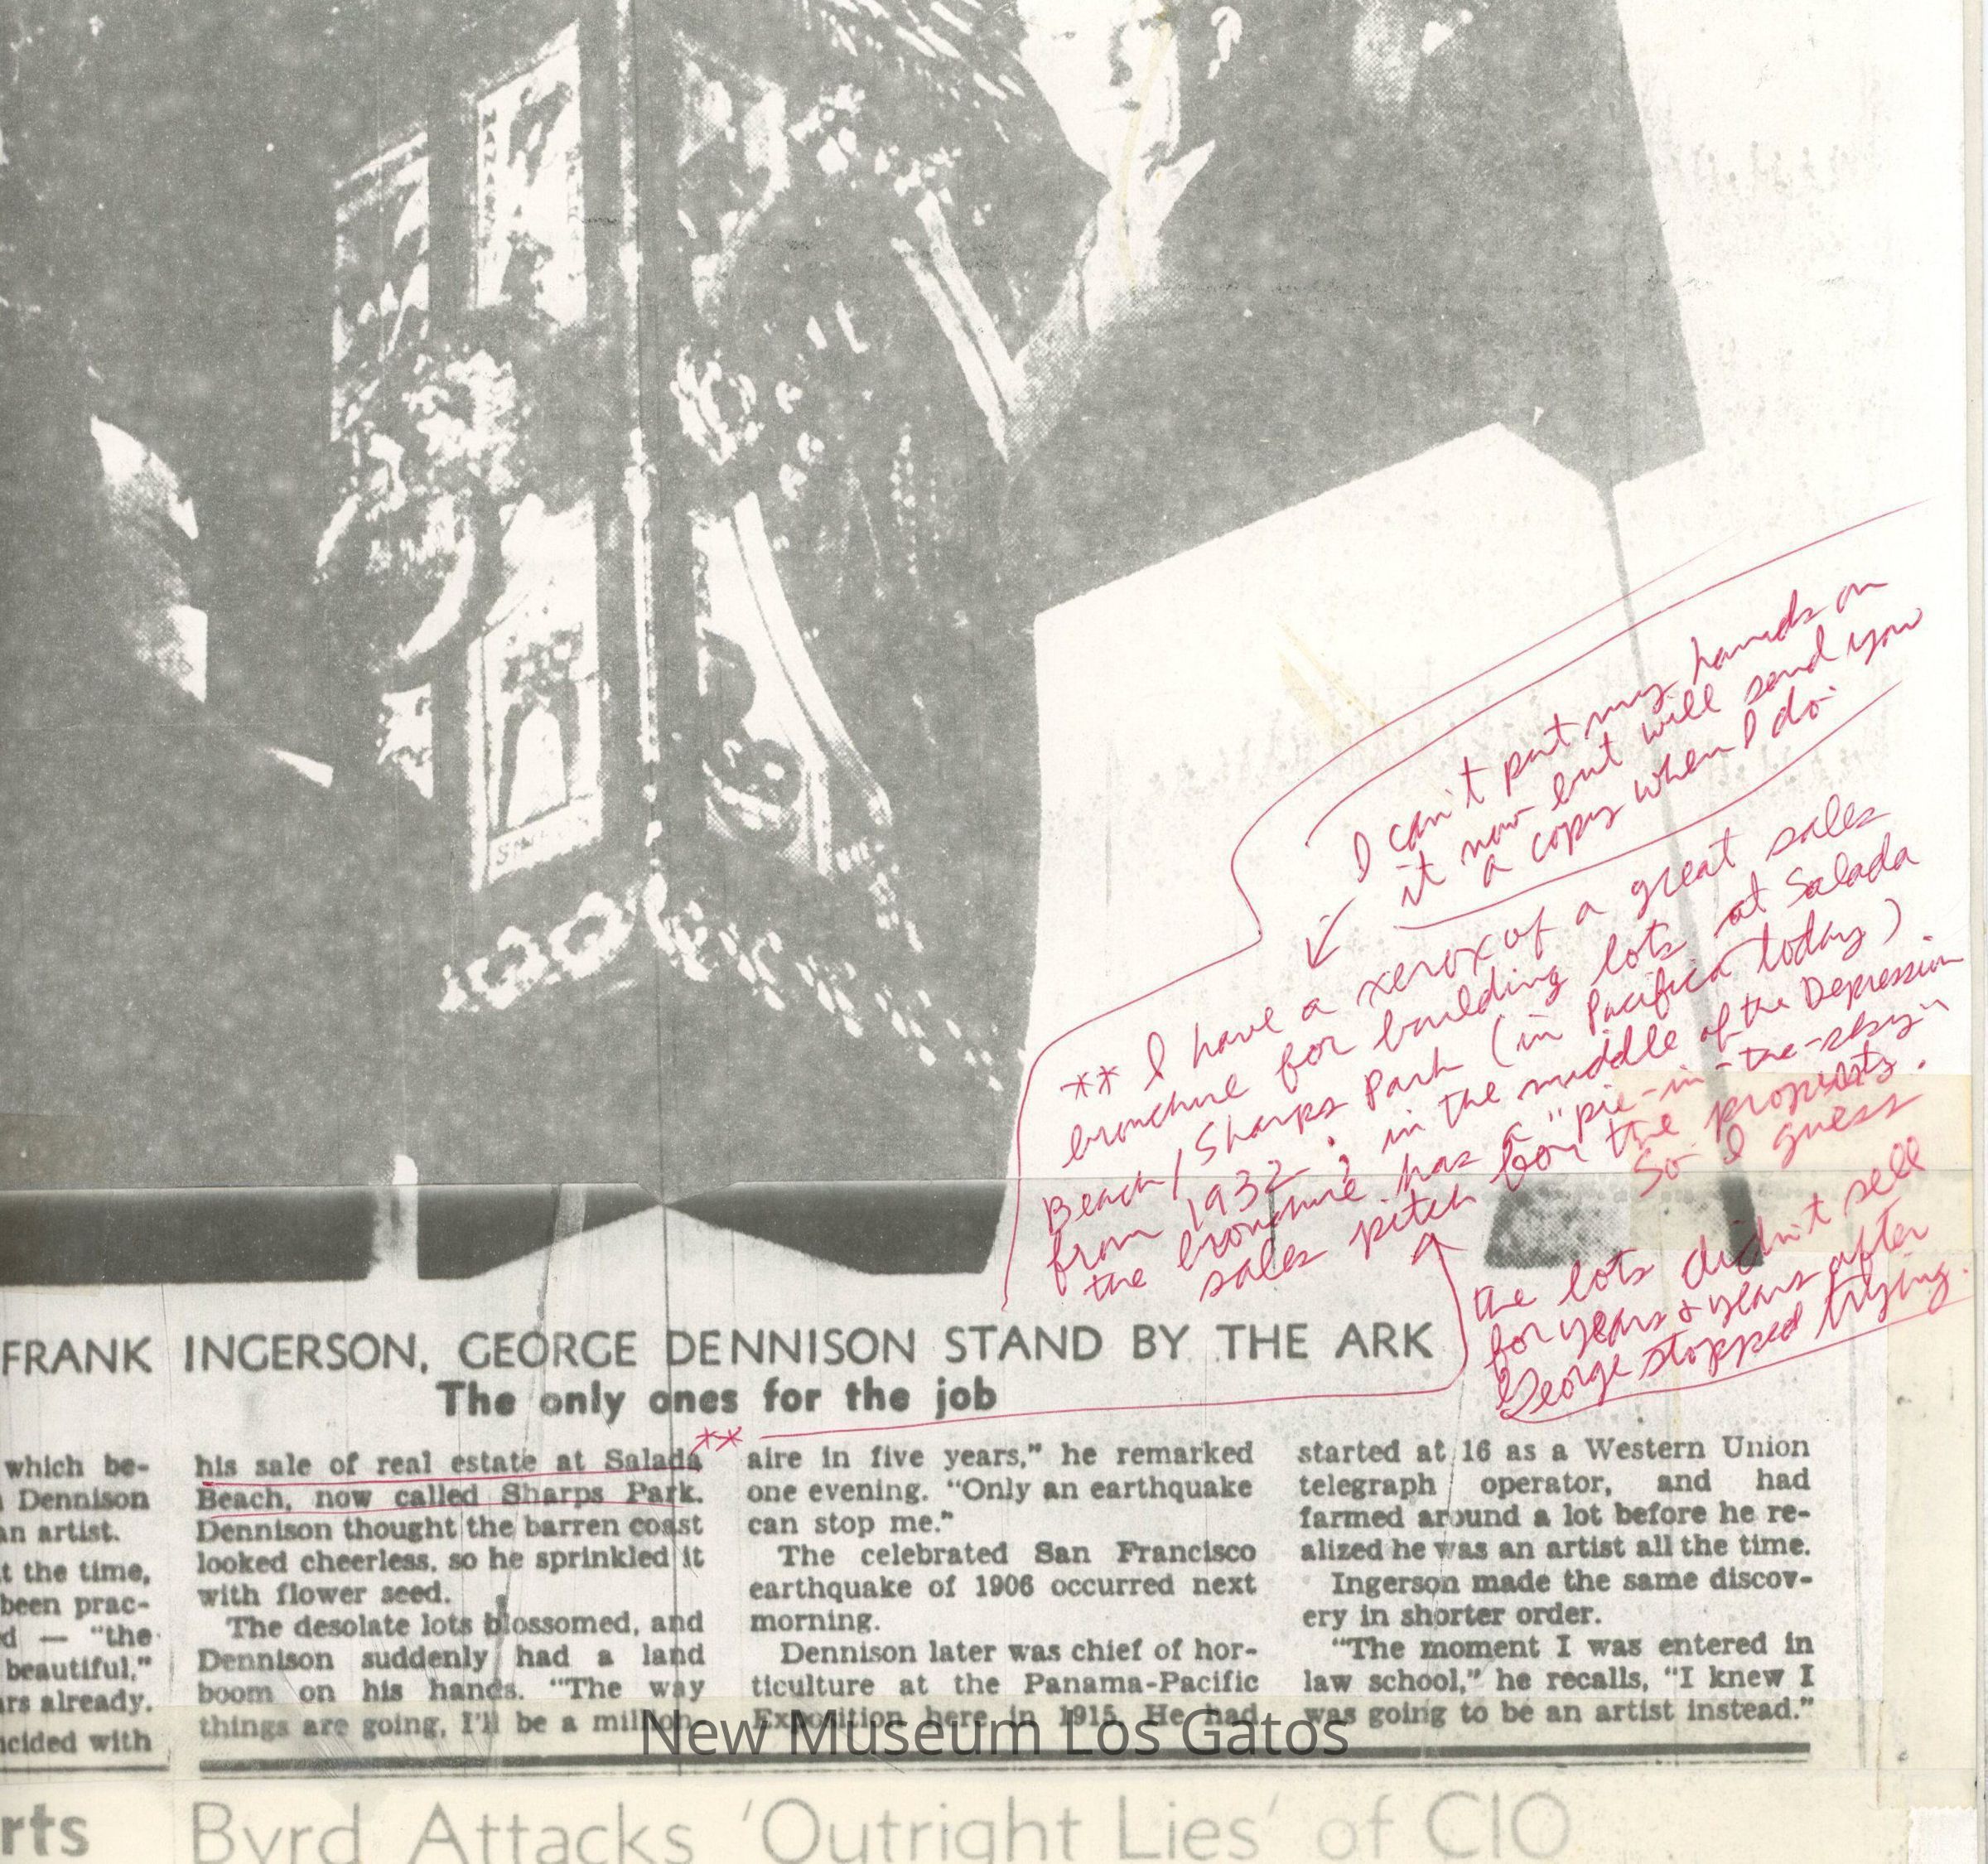 I can't put my hands on
it now but will send you
a copy when I do
** I have a xerox of a great sales
brouchure for building lots at Salada
Beach/Sharps Park (in Pacifica today)
from 1932; in the middle of the Depression.
the brouchure has a "pie-in-the-sky"
sales pitch for the
So I guess
the lots didn't sell
for years & years after
George stopped trying.
FRANK INGERSON, GEORGE DENNISON STAND BY THE ARK
The only ones for the job
**
which be-
Dennison
an artist.
t the time,
been prac-
d — "the
beautiful,"
rs already.
cided with
his sale of real estate at Salada
Beach, now called Sharps Park.
Dennison thought the barren coast
looked cheerless, so he sprinkled it
with flower seed.
The desolate lots blossomed, and
Dennison suddenly had a land
boom on his hands. "The way
things are going, I'll be a million-
aire in five years," he remarked
one evening. "Only an earthquake
can stop me."
The celebrated San Francisco
earthquake of 1906 occurred next
morning.
Dennison later was chief of hor-
ticulture at the Panama-Pacific
Exposition here in 1915. He had
started at 16 as a Western Union
telegraph operator, and had
farmed around a lot before he re-
alized he was an artist all the time.
Ingerson made the same discov-
ery in shorter order.
"The moment I was entered in
law school," he recalls, "I knew I
was going to be an artist instead."
New Museum Los Gatos
rts
Byrd Attacks 'Outright Lies' of CIO